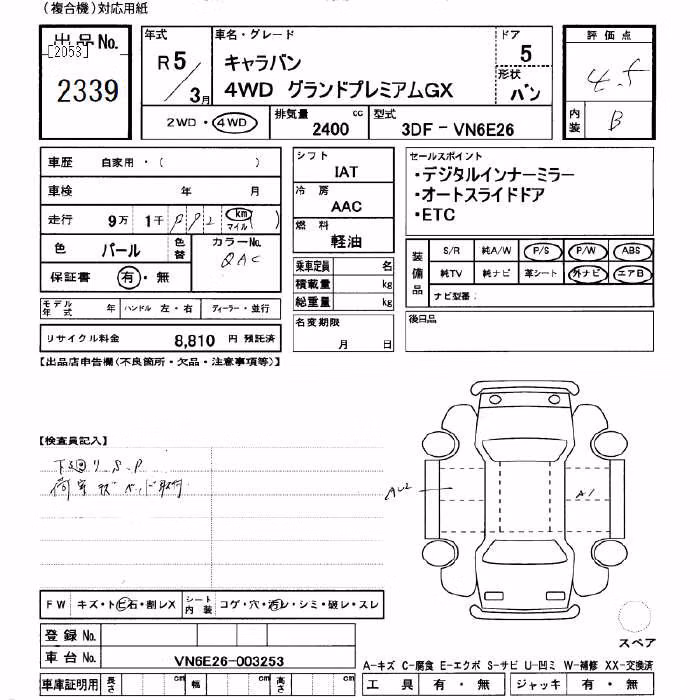 (複合機)対応用紙
出品No.
[2053]
2339
年式
R5/3月
車名・グレード
キャラバン
4WD グランドプレミアムGX
ドア
5
形状
バン
評価点
4.5
内装
B
2WD・4WD
排気量
2400 cc
型式
3DF-VN6E26
車歴 自家用・( )
車検 年 月
走行 9万 1千 km マイル ( )
色 パール 色替
カラーNo.
QAC
保証書 有・無
モデル年式 年 ハンドル 左・右 ディーラー・並行
リサイクル料金 8,810 円 預託済
シフト
IAT
冷房
AAC
燃料
軽油
乗車定員 名
積載量 kg
総重量 kg
名変期限
月 日
セールスポイント
・デジタルインナーミラー
・オートスライドドア
・ETC
装備品
S/R 純A/W P/S P/W ABS
純TV 純ナビ 革シート 外ナビ エアB
ナビ型番:
後日品
【出品店申告欄(不良箇所・欠品・注意事項等)】
【検査員記入】
下廻り S.P
荷室 ベッド取付
AU2
A1
FW キズ・トビ石・割レX
シート内装 コゲ・穴・汚レ・シミ・破レ・スレ
登録No.
車台No. VN6E26-003253
車庫証明用 長さ cm 幅 cm 高さ cm
スペア
A-キズ C-腐食 E-エクボ S-サビ U-凹ミ W-補修 XX-交換済
工具 有・無 ジャッキ 有・無